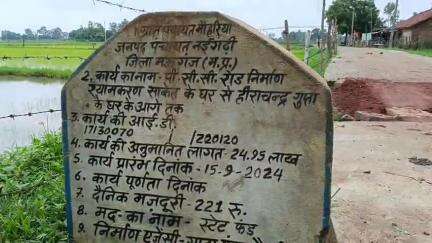 1. ग्राम पंचायत मौहरिया
जनपद पंचायत नईगढ़ी
जिला मऊगंज (म.प्र.)
2. कार्य का नाम - पी.सी.सी. रोड निर्माण
श्यामकरण साकेत के घर से हीराचन्द्र गुप्ता
के घर के आगे तक
3. कार्य की आई.डी.
17130070 / /220120
4. कार्य की अनुमानित लागत - 24.95 लाख
5. कार्य प्रारंभ दिनांक - 15-9-2024
6. कार्य पूर्णता दिनांक
7. दैनिक मजदूरी - 221 रु.
8. मद का नाम - स्टेट फंड
9. निर्माण एजेंसी -